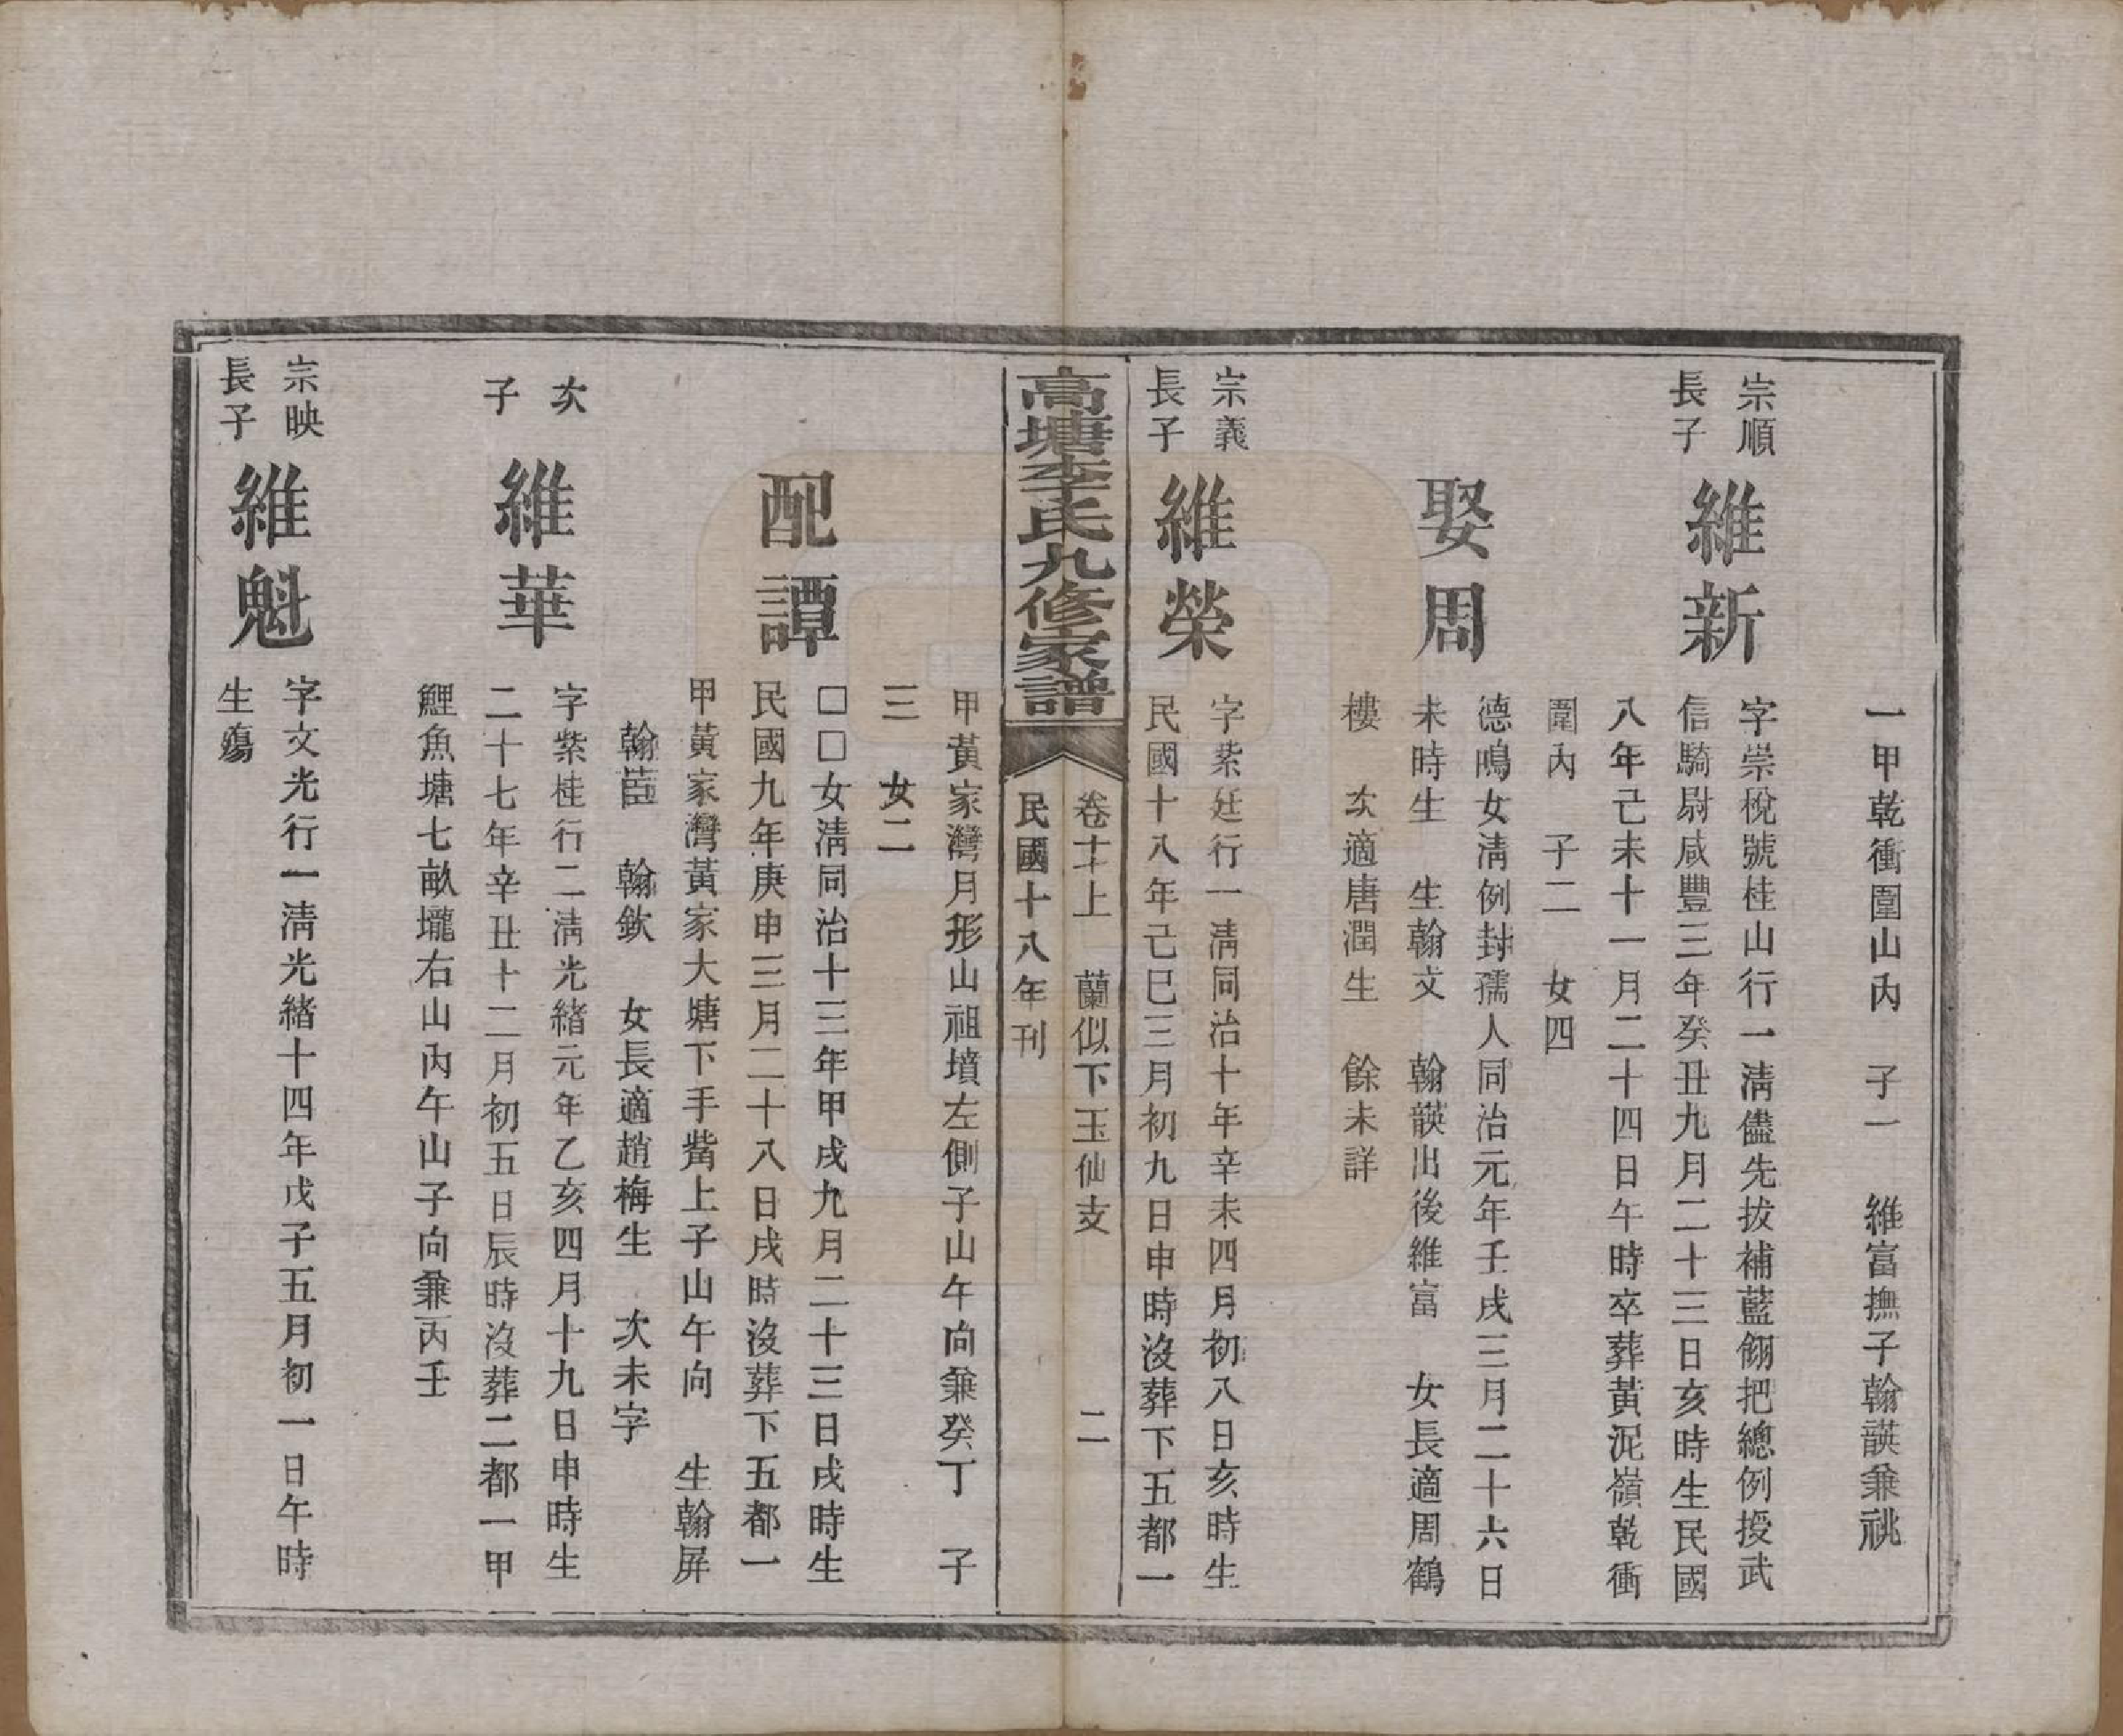 一甲乾衝圍山內　子一　維富撫子翰韺兼祧
宗順
長子
維新
字崇梲號桂山行一清儘先拔補藍翎把總例授武
信騎尉咸豐三年癸丑九月二十三日亥時生民國
八年己未十一月二十四日午時卒葬黃泥嶺乾衝
圍內　子二　女四
娶周
德鳴女清例封孺人同治元年壬戌三月二十六日
未時生　生翰文　翰韺出後維富　女長適周鶴
樓　次適唐潤生　餘未詳
宗義
長子
維榮
字紫廷行一清同治十年辛未四月初八日亥時生
民國十八年己巳三月初九日申時沒葬下五都一
高塘李氏九修家譜
卷十上　蘭似下玉仙支　二
民國十八年刊
甲黃家灣月形山祖墳左側子山午向兼癸丁　子
三　女二
配譚
□□女清同治十三年甲戌九月二十三日戌時生
民國九年庚申三月二十八日戌時沒葬下五都一
甲黃家灣黃家大塘下手觜上子山午向　生翰屏
翰　翰欽　女長適趙梅生　次未字
次
子
維華
字紫桂行二清光緒元年乙亥四月十九日申時生
二十七年辛丑十二月初五日辰時沒葬二都一甲
鯉魚塘七畝壠右山內午山子向兼丙壬
宗映
長子
維魁
字文光行一清光緒十四年戊子五月初一日午時
生殤